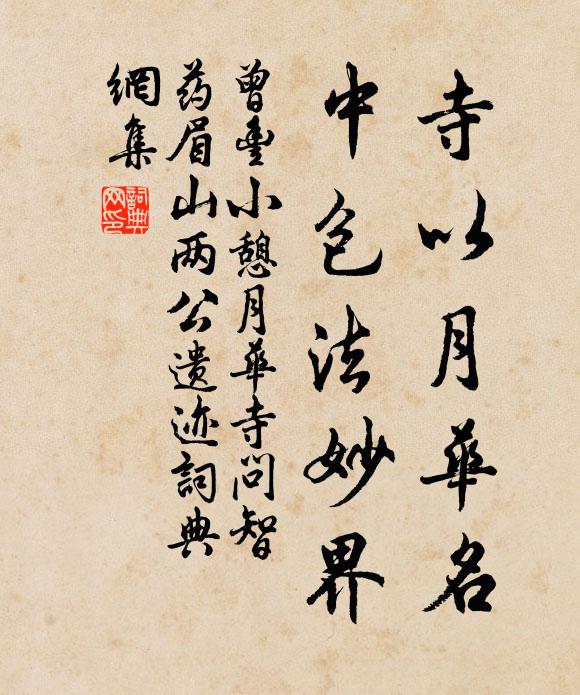 寺以月華名
中包法妙界
曾豊小憩月華寺問智
药眉山两公遗迹詞典
網集
詞典網印